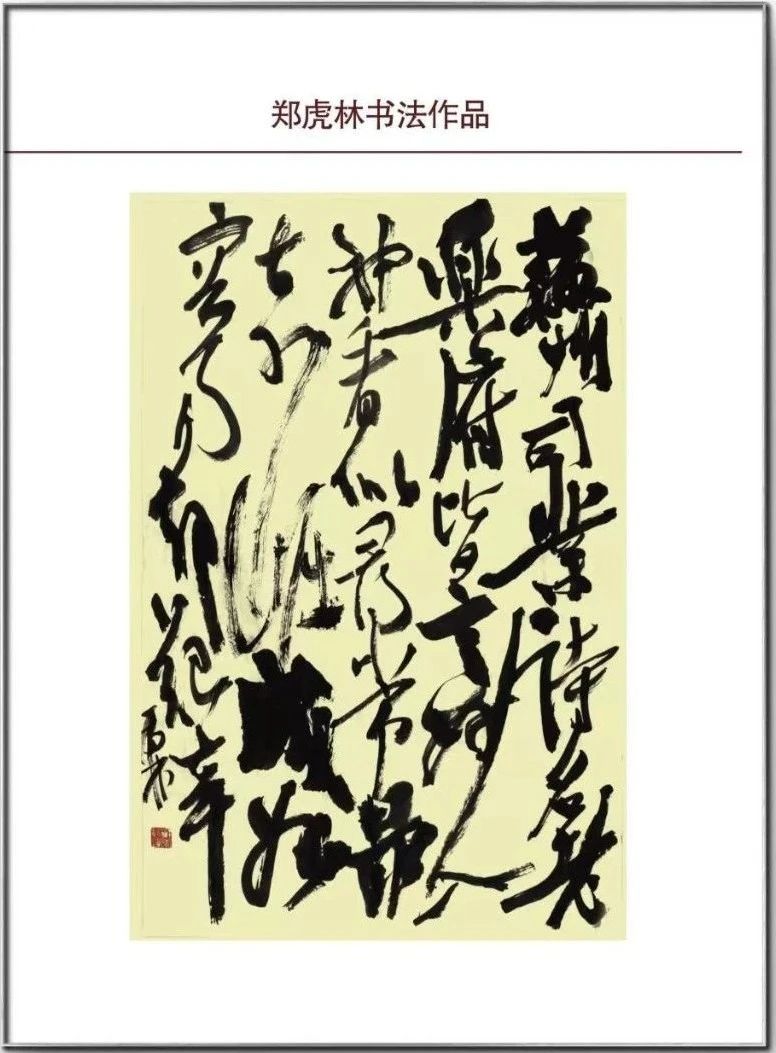 郑虎林书法作品
蘇州司業詩名老
樂府皆言妙入
神看似尋常最
奇崛成如
容易却艱辛
虎林